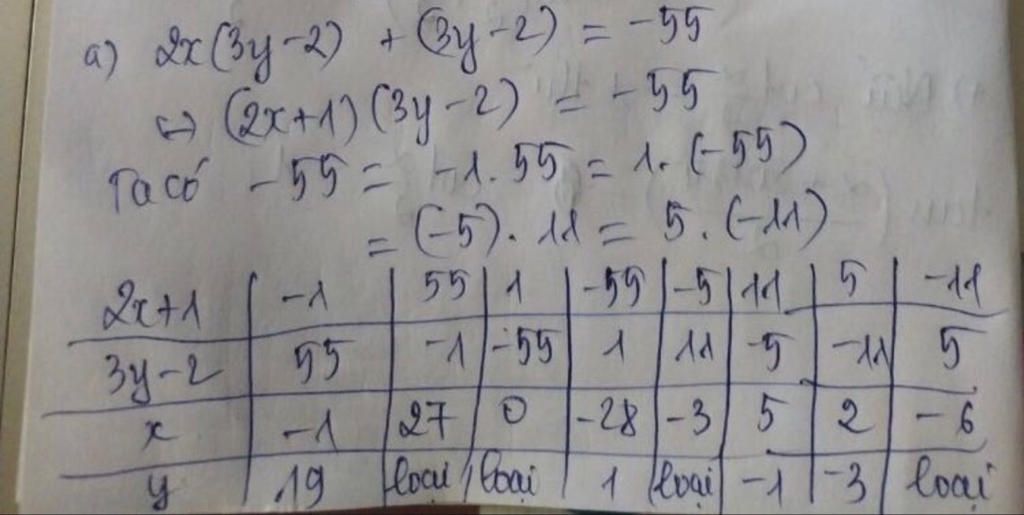 a) 2x(3y-2) + (3y-2) = -55
⇔ (2x+1)(3y-2) = -55
Ta có -55 = -1.55 = 1.(-55)
= (-5).11 = 5.(-11)
2x+1 -1 55 1 -55 -5 11 5 -11
3y-2 55 -1 -55 1 11 -5 -11 5
x -1 27 0 -28 -3 5 2 -6
y 19 loại loại 1 loại -1 -3 loại